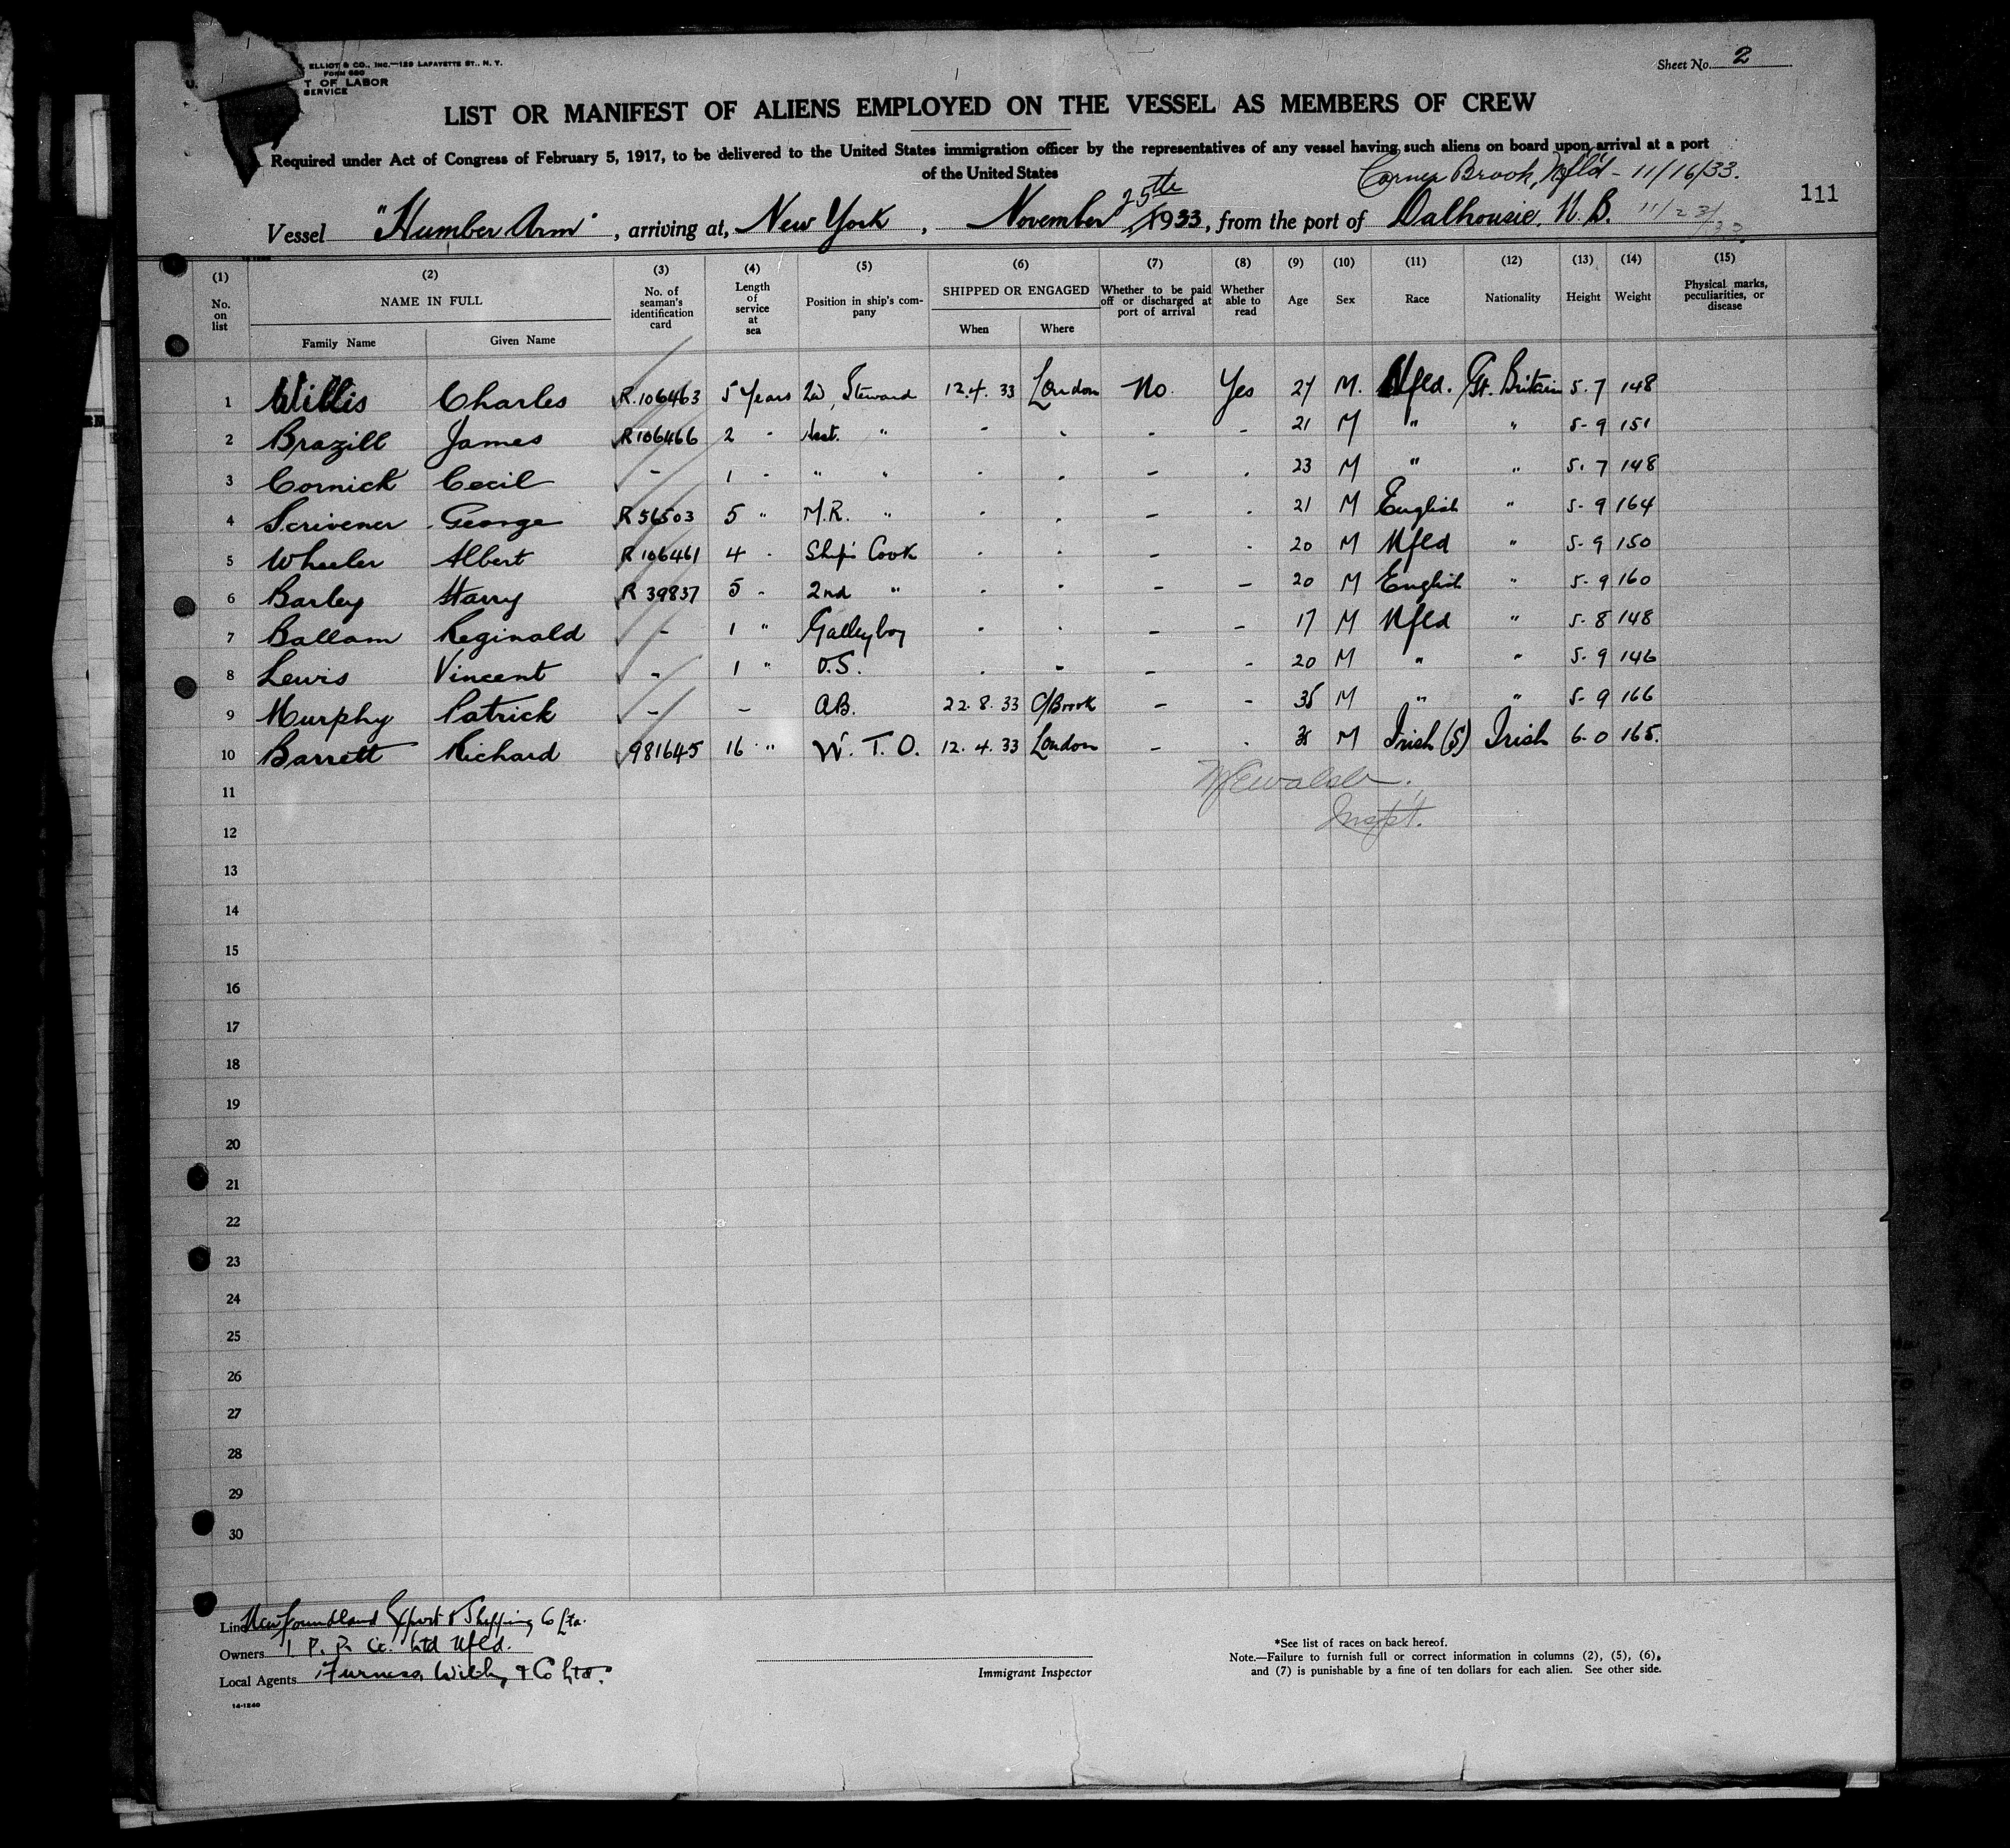 ELLIOT & CO., INC.—129 LAFAYETTE ST., N. Y.
FORM 680
T OF LABOR
SERVICE
Sheet No. 2
LIST OR MANIFEST OF ALIENS EMPLOYED ON THE VESSEL AS MEMBERS OF CREW
Required under Act of Congress of February 5, 1917, to be delivered to the United States immigration officer by the representatives of any vessel having such aliens on board upon arrival at a port
of the United States
Corner Brook, Nfld - 11/16/33.
111
Vessel "Humber Arm", arriving at, New York, November 25th 1933, from the port of Dalhousie, N. B. 11/23/33.
(1) (2) (3) (4) (5) (6) (7) (8) (9) (10) (11) (12) (13) (14) (15)
No. on list NAME IN FULL Family Name Given Name No. of seaman's identification card Length of service at sea Position in ship's company SHIPPED OR ENGAGED When Where Whether to be paid off or discharged at port of arrival Whether able to read Age Sex Race Nationality Height Weight Physical marks, peculiarities, or disease
1 Willis Charles R.106463 5 Years 2nd Steward 12.4.33 London No. Yes 27 M. Nfld. Gt. Britain 5.7 148
2 Brazill James R106466 2 - Asst. " - - - - 21 M " " 5-9 151
3 Cornick Cecil - 1 - " " - - - - 23 M " " 5.7 148
4 Scrivener George R56503 5 " M.R. " - - - - 21 M English " 5-9 164
5 Wheeler Albert R106461 4 - Ship's Cook - - - - 20 M Nfld " 5-9 150
6 Barley Harry R 39837 5 - 2nd " - - - - 20 M English " 5-9 160
7 Ballam Reginald - 1 " Galleyboy - - - - 17 M Nfld " 5-8 148
8 Lewis Vincent - 1 " O.S. - - - - 20 M " " 5-9 146
9 Murphy Patrick - - A.B. 22.8.33 C/Brook - - 35 M " " 5-9 166
10 Barrett Richard 981645 16 " W. T. O. 12.4.33 London - - M Irish (S) Irish 6-0 165.
11
Walsh
12
Inspt.
13
14
15
16
17
18
19
20
21
22
23
24
25
26
27
28
29
30
Line Newfoundland Export & Shipping Co Ltd.
Owners I. P. P. Co. Ltd Nfld.
Local Agents Furness, Withy & Co Ltd.
14-1240
Immigrant Inspector
*See list of races on back hereof.
Note.—Failure to furnish full or correct information in columns (2), (5), (6),
and (7) is punishable by a fine of ten dollars for each alien. See other side.